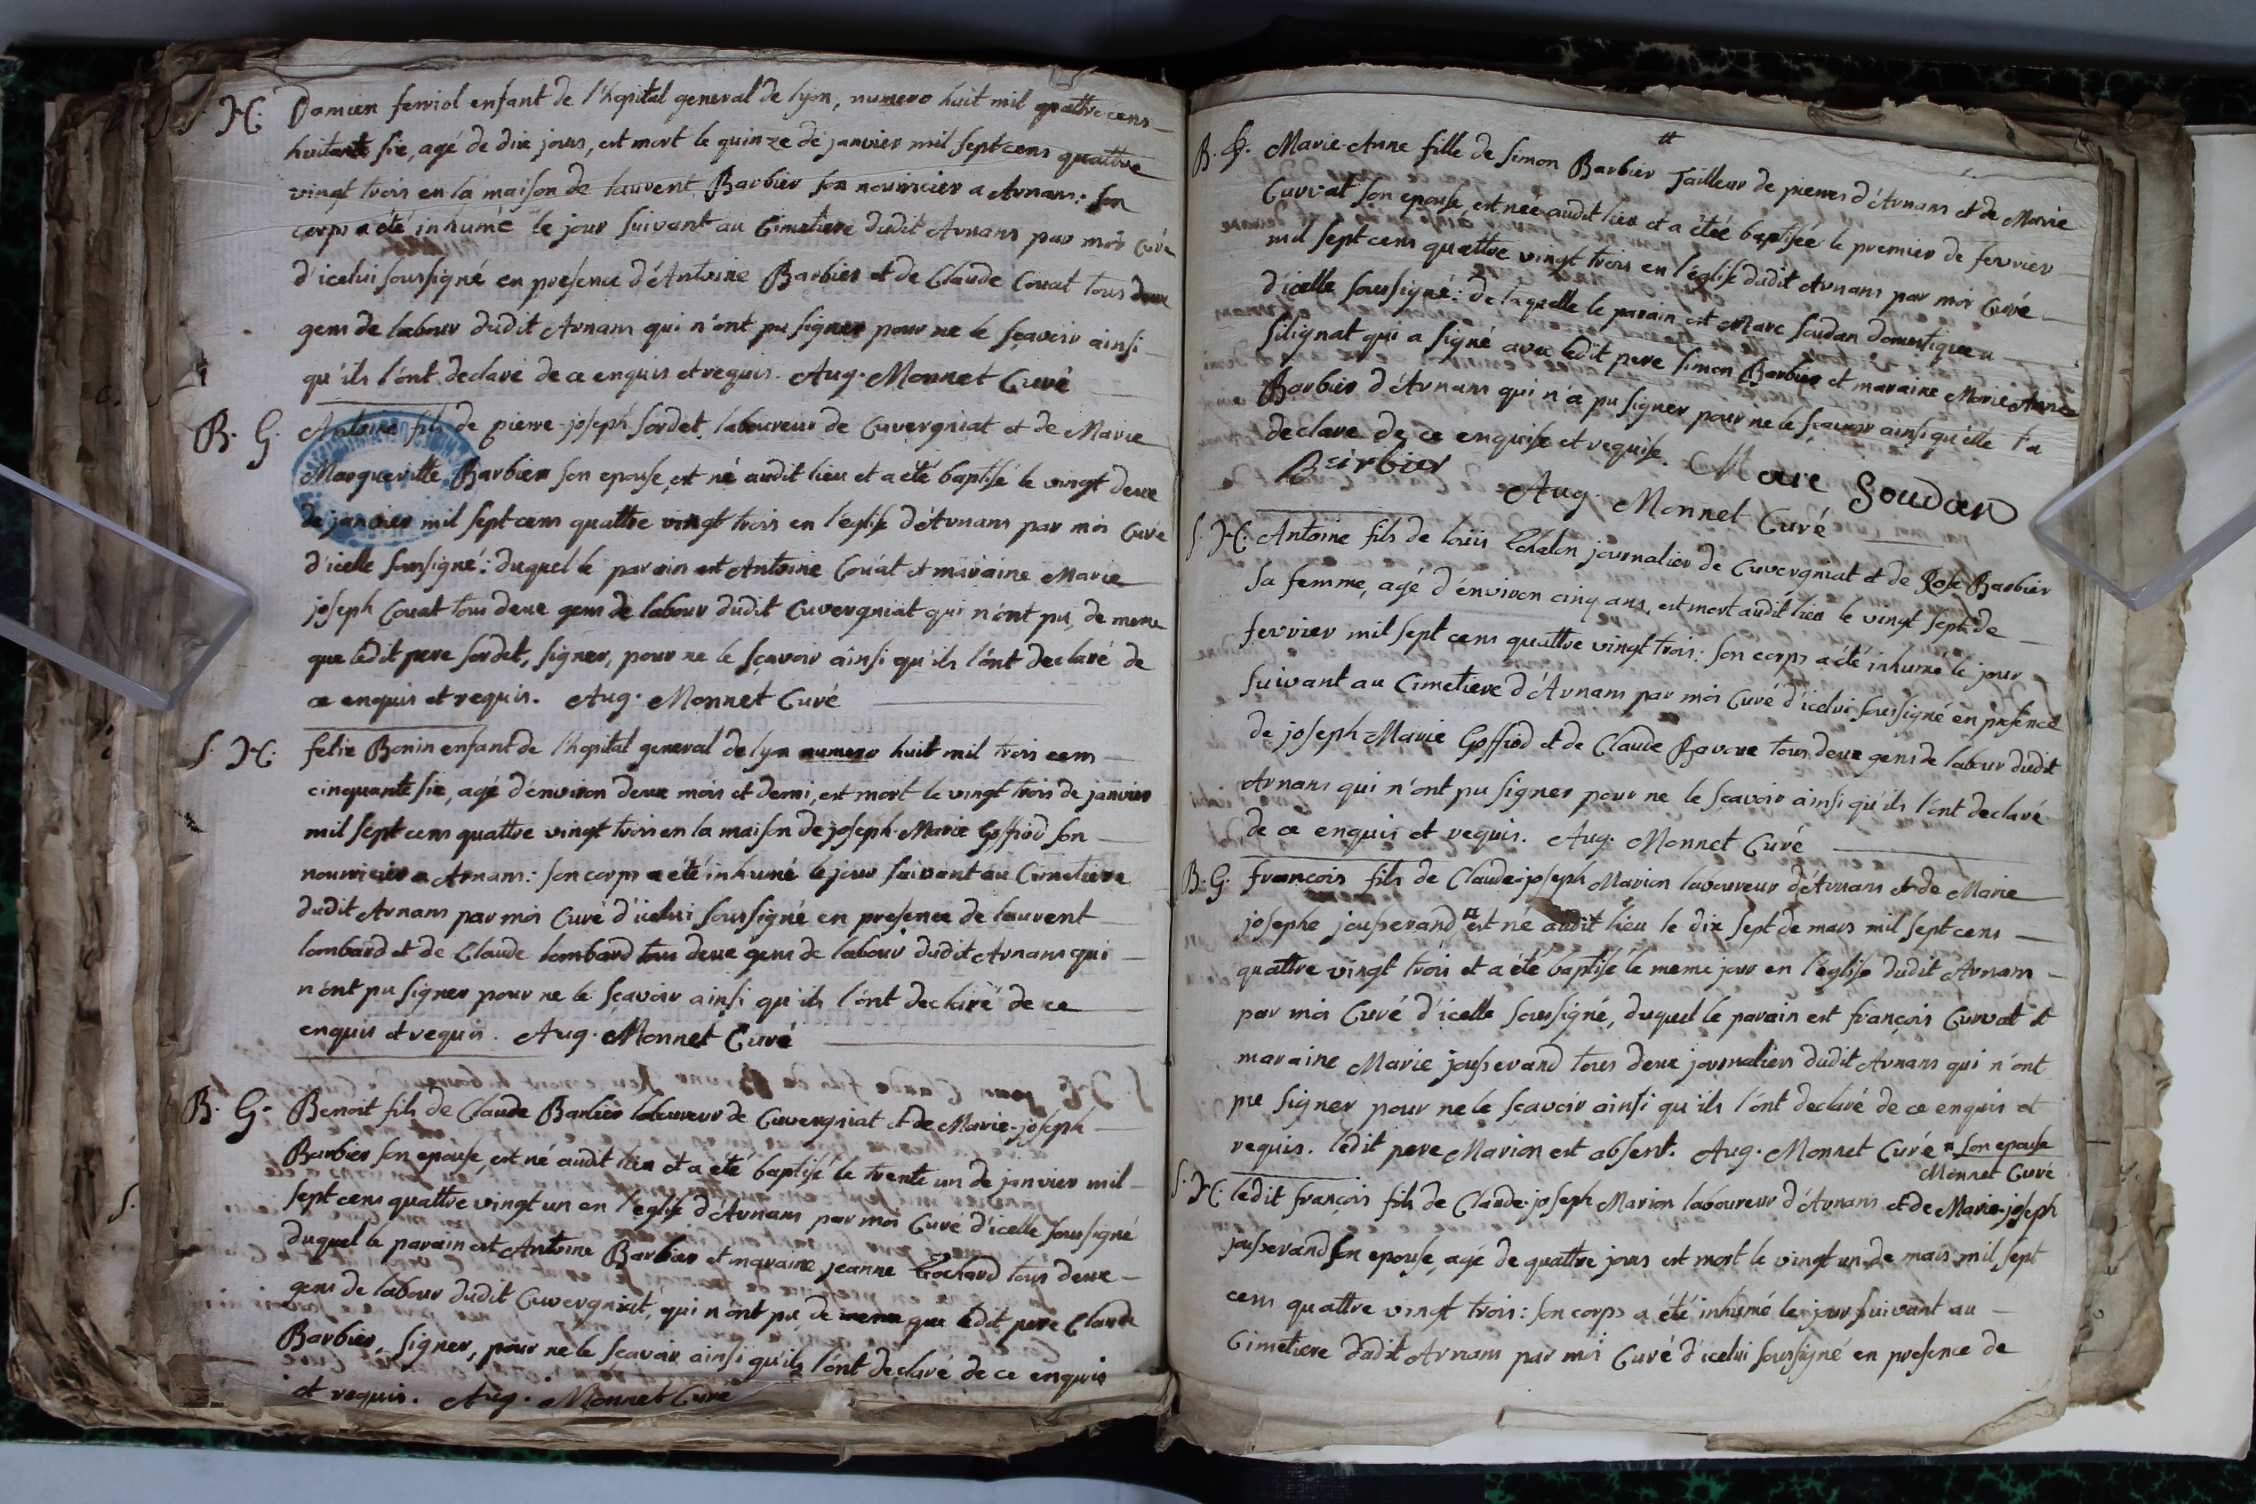 S. H. Damien ferriol enfant de l'hopital general de lyon, numero huit mil quattre cens
huitante six, agé de dix jours, est mort le quinze de janvier mil sept cens quattre
vingt trois en la maison de laurent Barbier son nourricier a Arnans. son
corps a été inhumé le jour suivant au Cimetiere dudit Arnans par moi Curé
d'icelui soussigné en presence d'Antoine Barbier et de Claude Couat tous deux
gens de labour dudit Arnans qui n'ont pu signer pour ne le sçavoir ainsi
qu'ils l'ont declaré de ce enquis et requis. Aug. Monnet Curé
B. G. Antoine fils de pierre-joseph sordet laboureur de Cuvergniat et de Marie
Margueritte Barbier son epouse, est né audit lieu et a été baptisé le vingt deux
de janvier mil sept cens quattre vingt trois en l'eglise d'Arnans par moi Curé
d'icelle soussigné: duquel le parain est Antoine Couat et maraine Marie
joseph Couat tous deux gens de labour dudit Cuvergniat qui n'ont pu, de meme
que ledit pere sordet, signer, pour ne le sçavoir ainsi qu'ils l'ont declaré de
ce enquis et requis. Aug. Monnet Curé
S. H. felix Bonin enfant de l'hopital general de lyon numero huit mil trois cens
cinquante six, agé d'environ deux mois et demi, est mort le vingt trois de janvier
mil sept cens quattre vingt trois en la maison de joseph-Marie Goffiod son
nourricier a Arnans: son corps a été inhumé le jour suivant au Cimetiere
dudit Arnans par moi Curé d'icelui soussigné en presence de laurent
lombard et de Claude lombard tous deux gens de labour dudit Arnans qui
n'ont pu signer pour ne le sçavoir ainsi qu'ils l'ont declaré de ce
enquis et requis. Aug. Monnet Curé
B. G. Benoit fils de Claude Barbier laboureur de Cuvergniat et de Marie-joseph
Barbier son epouse, est né audit lieu et a été baptisé le trente un de janvier mil
sept cens quattre vingt un en l'eglise d'Arnans par moi Curé d'icelle soussigné
duquel le parain est Antoine Barbier et maraine jeanne Cochard tous deux
gens de labour dudit Cuvergniat, qui n'ont pu, de meme que ledit pere Claude
Barbier, signer, pour ne le sçavoir ainsi qu'ils l'ont declaré de ce enquis
et requis. Aug. Monnet Curé
B. Marie-Anne fille de Simon Barbier Tailleur de pierres d'Arnans et de Marie
Curvat son epouse, est née audit lieu et a étée baptisée le premier de fevrier
mil sept cens quattre vingt trois en l'eglise dudit Arnans par moi Curé
d'icelle soussigné: de laquelle le parain est Marc Soudan domestique a
Silignat qui a signé avec ledit pere Simon Barbier et maraine Marie Anne
Barbier d'Arnans qui n'a pu signer pour ne le sçavoir ainsi qu'elle l'a
declaré de ce enquise et requise. Marc Soudan
Barbier
Aug. Monnet Curé
S. H. Antoine fils de loüis Chalon journalier de Cuvergniat et de Rose Barbier
sa femme, agé d'environ cinq ans, est mort audit lieu le vingt sept de
fevrier mil sept cens quattre vingt trois: son corps a été inhumé le jour
suivant au Cimetiere d'Arnans par moi Curé d'icelui soussigné en presence
de joseph-Marie Goffiod et de Claude Ravore tous deux gens de labour dudit
Arnans qui n'ont pu signer pour ne le sçavoir ainsi qu'ils l'ont declaré
de ce enquis et requis. Aug. Monnet Curé
B. G. françois fils de Claude-joseph Marion laboureur d'Arnans et de Marie
josephe jousserand ¤ est né audit lieu le dix sept de mars mil sept cens
quattre vingt trois et a été baptisé le meme jour en l'eglise dudit Arnans
par moi Curé d'icelle soussigné, duquel le parain est françois Curvat et
maraine Marie jousserand tous deux journaliers dudit Arnans qui n'ont
pu signer pour ne le sçavoir ainsi qu'ils l'ont declaré de ce enquis et
requis. ledit pere Marion est absent. Aug. Monnet Curé ¤ son epouse
Monnet Curé
S. H. ledit françois fils de Claude-joseph Marion laboureur d'Arnans et de Marie-joseph
jousserand son epouse, agé de quattre jours est mort le vingt un de mars mil sept
cens quattre vingt trois: son corps a été inhumé le jour suivant au
Cimetiere dudit Arnans par moi Curé d'icelui soussigné en presence de